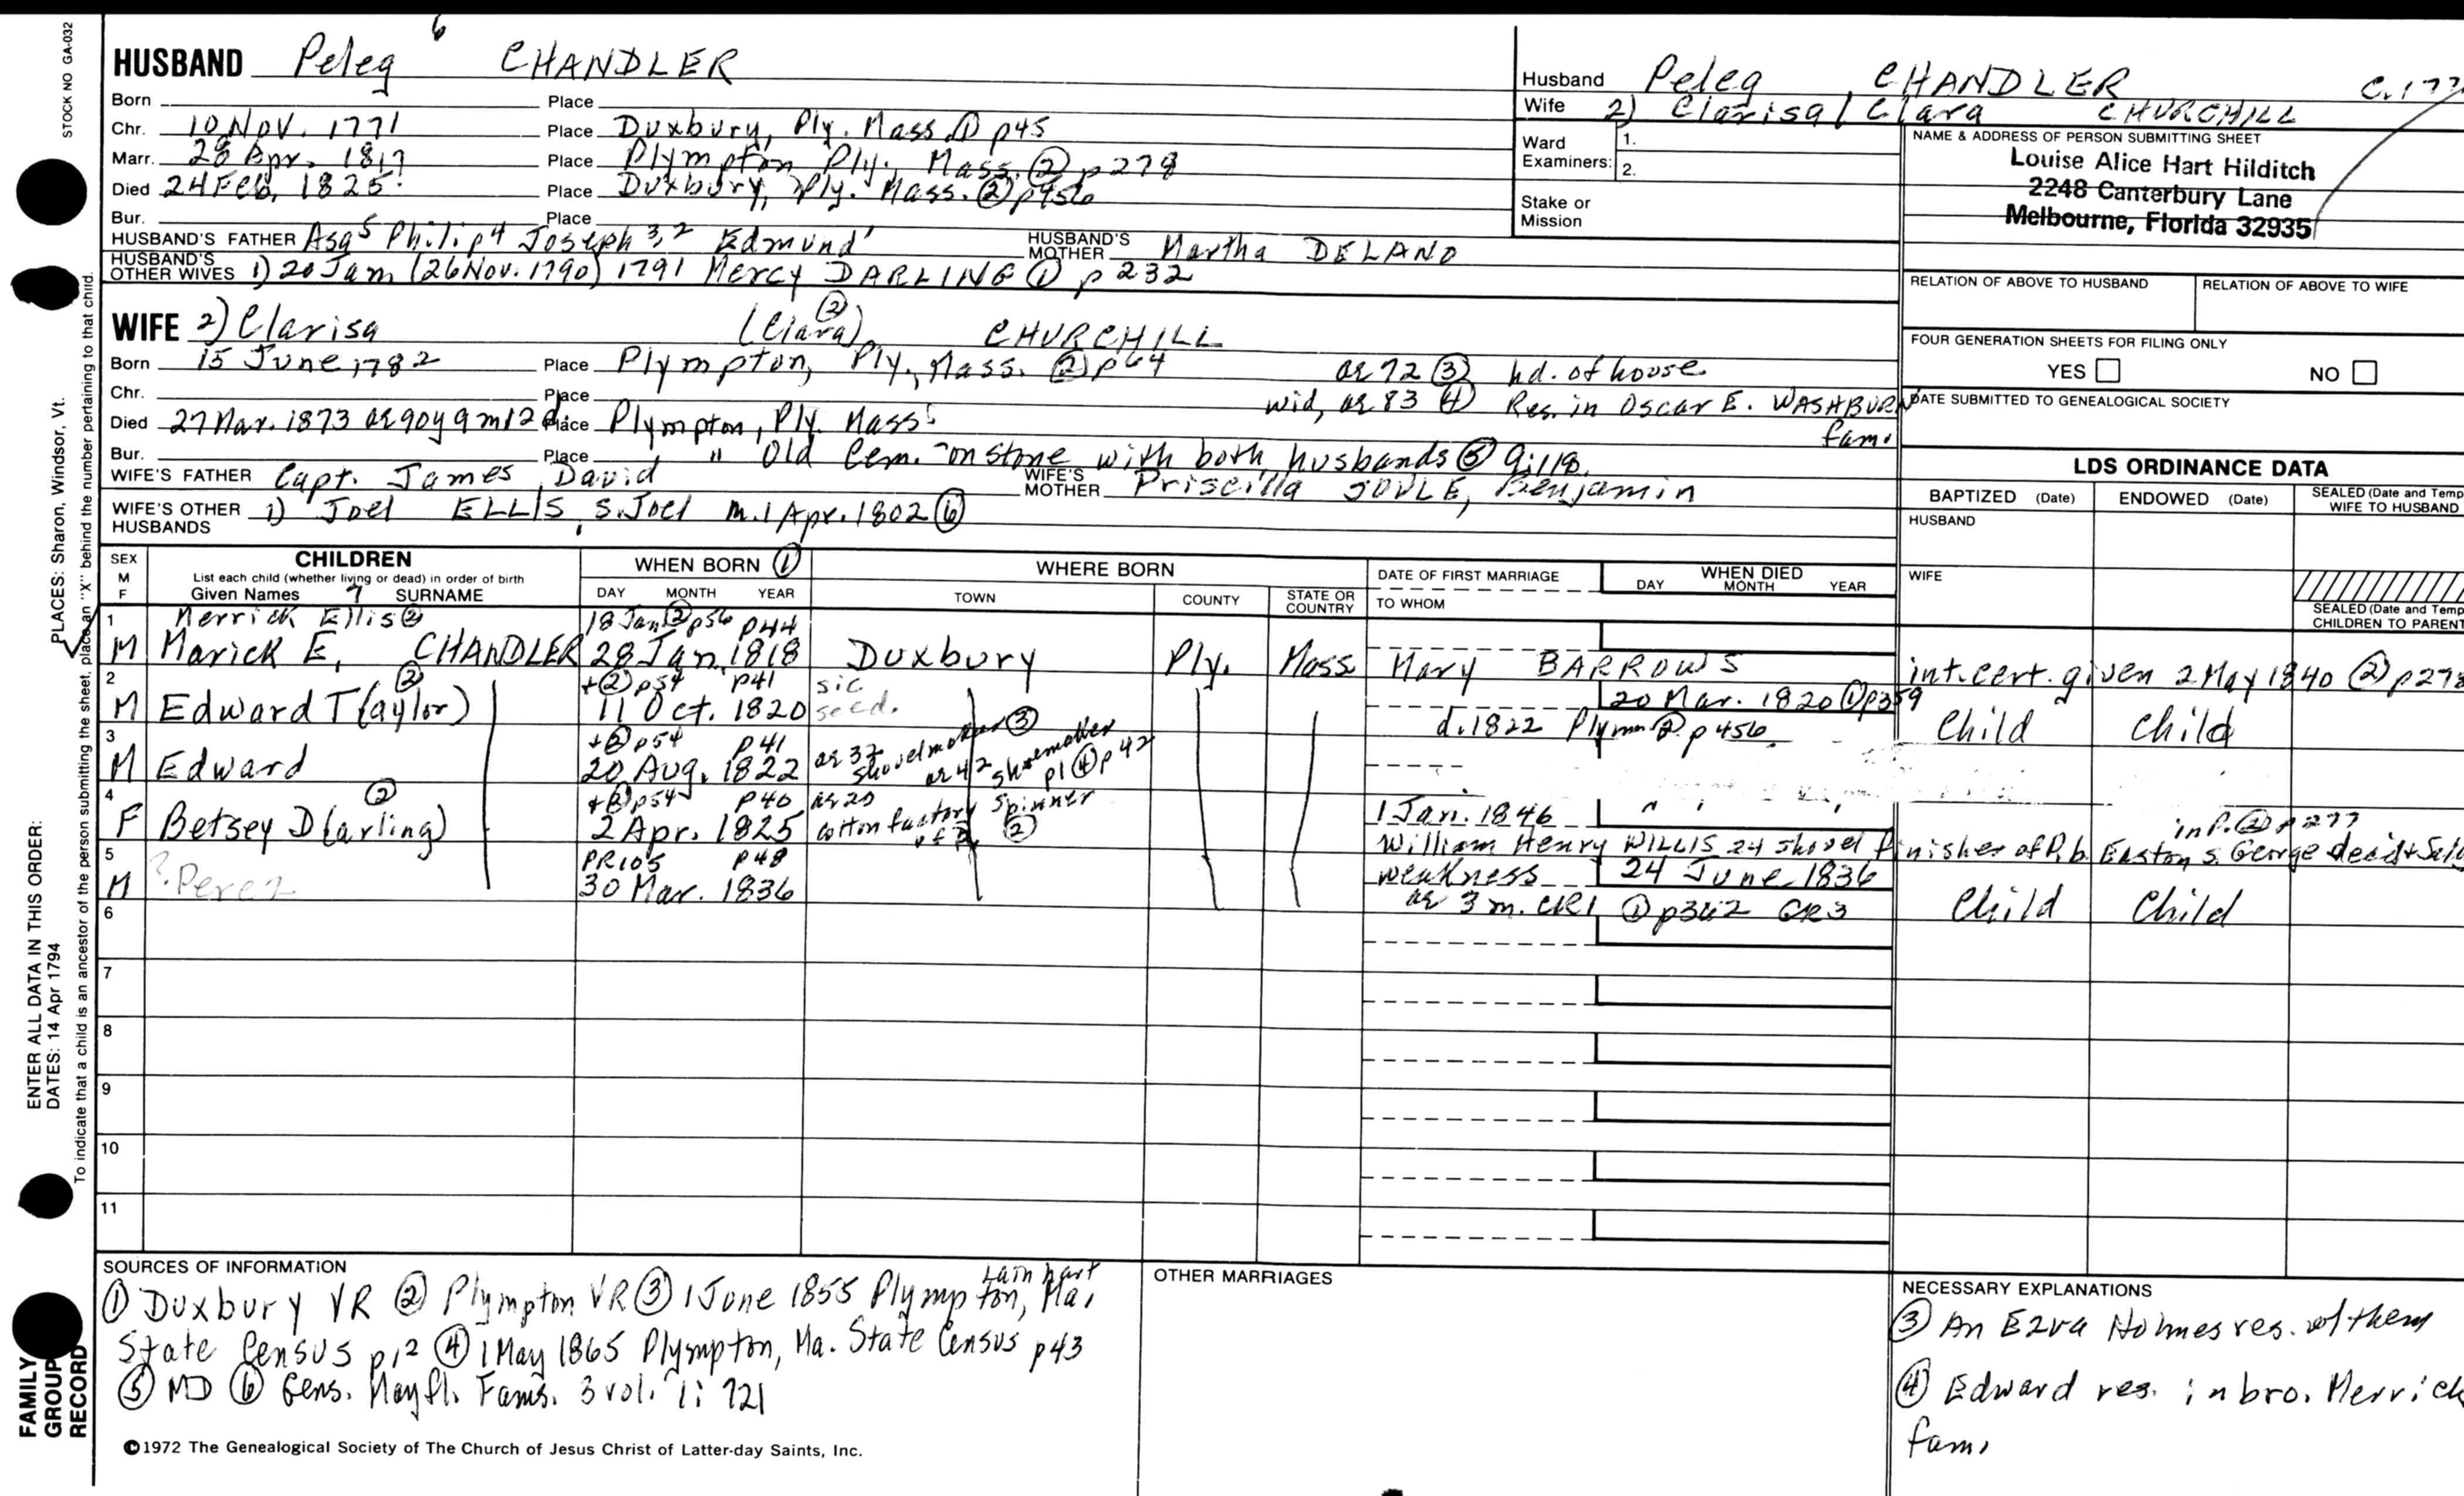 STOCK NO GA-032
HUSBAND Peleg 6 CHANDLER
Born Place
Chr. 10 Nov. 1771 Place Duxbury, Ply. Mass ① p45
Marr. 28 Apr. 1817 Place Plympton Ply., Mass. ② p278
Died 24 Feb, 1825 Place Duxbury, Ply. Mass. ② p456
Bur. Place
HUSBAND'S FATHER Asa 5 Philip 4 Joseph 3,2 Edmund 1 HUSBAND'S MOTHER Martha DELANO
HUSBAND'S OTHER WIVES 1) 20 Jan (26 Nov. 1790) 1791 Mercy DARLING ① p232
Husband Peleg CHANDLER
Wife 2) Clarisa / Clara CHURCHILL
Ward Examiners: 1.
2.
Stake or Mission
NAME & ADDRESS OF PERSON SUBMITTING SHEET
Louise Alice Hart Hilditch
2248 Canterbury Lane
Melbourne, Florida 32935
RELATION OF ABOVE TO HUSBAND RELATION OF ABOVE TO WIFE
FOUR GENERATION SHEETS FOR FILING ONLY
YES NO
DATE SUBMITTED TO GENEALOGICAL SOCIETY
WIFE 2) Clarisa (Clara) ② CHURCHILL
Born 15 June 1782 Place Plympton, Ply., Mass. ② p64 ae 72 ③ hd. of house
Chr. Place wid, ae 83 ④ Res. in Oscar E. WASHBURN fam.
Died 27 Mar. 1873 ae 90y 9m 12d Place Plympton, Ply. Mass.
Bur. Place " Old Cem. on stone with both husbands ⑤
WIFE'S FATHER Capt. James, David WIFE'S MOTHER Priscilla SOULE, Benjamin
WIFE'S OTHER HUSBANDS 1) Joel ELLIS, s. Joel m. 1 Apr. 1802 ⑥
LDS ORDINANCE DATA
BAPTIZED (Date) ENDOWED (Date) SEALED (Date and Temp
WIFE TO HUSBAND
HUSBAND
WIFE
SEALED (Date and Temp
CHILDREN TO PARENT
SEX M F CHILDREN
List each child (whether living or dead) in order of birth
Given Names 7 SURNAME
WHEN BORN ①
DAY MONTH YEAR
WHERE BORN
TOWN COUNTY STATE OR COUNTRY
DATE OF FIRST MARRIAGE
TO WHOM
WHEN DIED
DAY MONTH YEAR
1 Merrick Ellis ② 18 Jan ② p56 p44
M Marick E. CHANDLER 28 Jan. 1818 Duxbury Ply. Mass Mary BARROWS int. cert. given 2 May 1840 ② p278
2 ② +② p54 p41 sic
M Edward T(aylor) 11 Oct. 1820 20 Mar. 1820 ① p359
d. 1822 Plym ② p456 Child Child
3 +② p54 p41 ae 32 shovelmaker ③
M Edward 20 Aug. 1822 ae 42 shoemaker p1 ④ p42
4 ② +② p54 p40 ae 20 1 Jan. 1846
F Betsey D(arling) 2 Apr. 1825 cotton factory spinner of P. ② William Henry WILLIS 24 shovel finisher of P, b. Easton, s. George dead + in P. ② p277
5 PR105 p48 weakness 24 June 1836
M ? Perez 30 Mar. 1836 ae 3 m. CR1 ① p342 GR3 Child Child
6
7
8
9
10
11
SOURCES OF INFORMATION
① Duxbury VR ② Plympton VR ③ 1 June 1855 Plympton, Ma.
State Census p12 ④ 1 May 1865 Plympton, Ma. State Census p43
⑤ MD ⑥ Gens. Mayfl. Fams. 3 vol. 1: 721
OTHER MARRIAGES
NECESSARY EXPLANATIONS
③ An Ezra Holmes res. w/ them
④ Edward res. in bro. Merrick
fam.
©1972 The Genealogical Society of The Church of Jesus Christ of Latter-day Saints, Inc.
PLACES: Sharon, Windsor, Vt.
ENTER ALL DATA IN THIS ORDER:
DATES: 14 Apr 1794
To indicate that a child is an ancestor of the person submitting the sheet, place an "X" behind the number pertaining to that child.
FAMILY
GROUP
RECORD